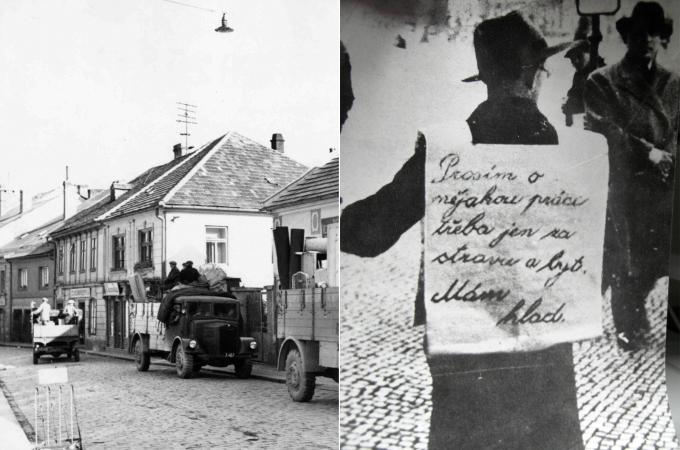 Prosím o
nějakou práci
třeba jen za
stravu a byt.
Mám
hlad.